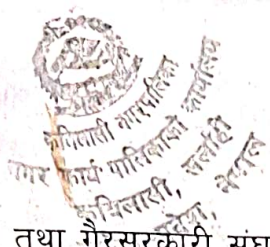 कविलासी नगरपालिका
नगर कार्य पालिकाको कार्यालय
कविलासी, सर्लाही
नेपाल
तथा गैरसरकारी संघ